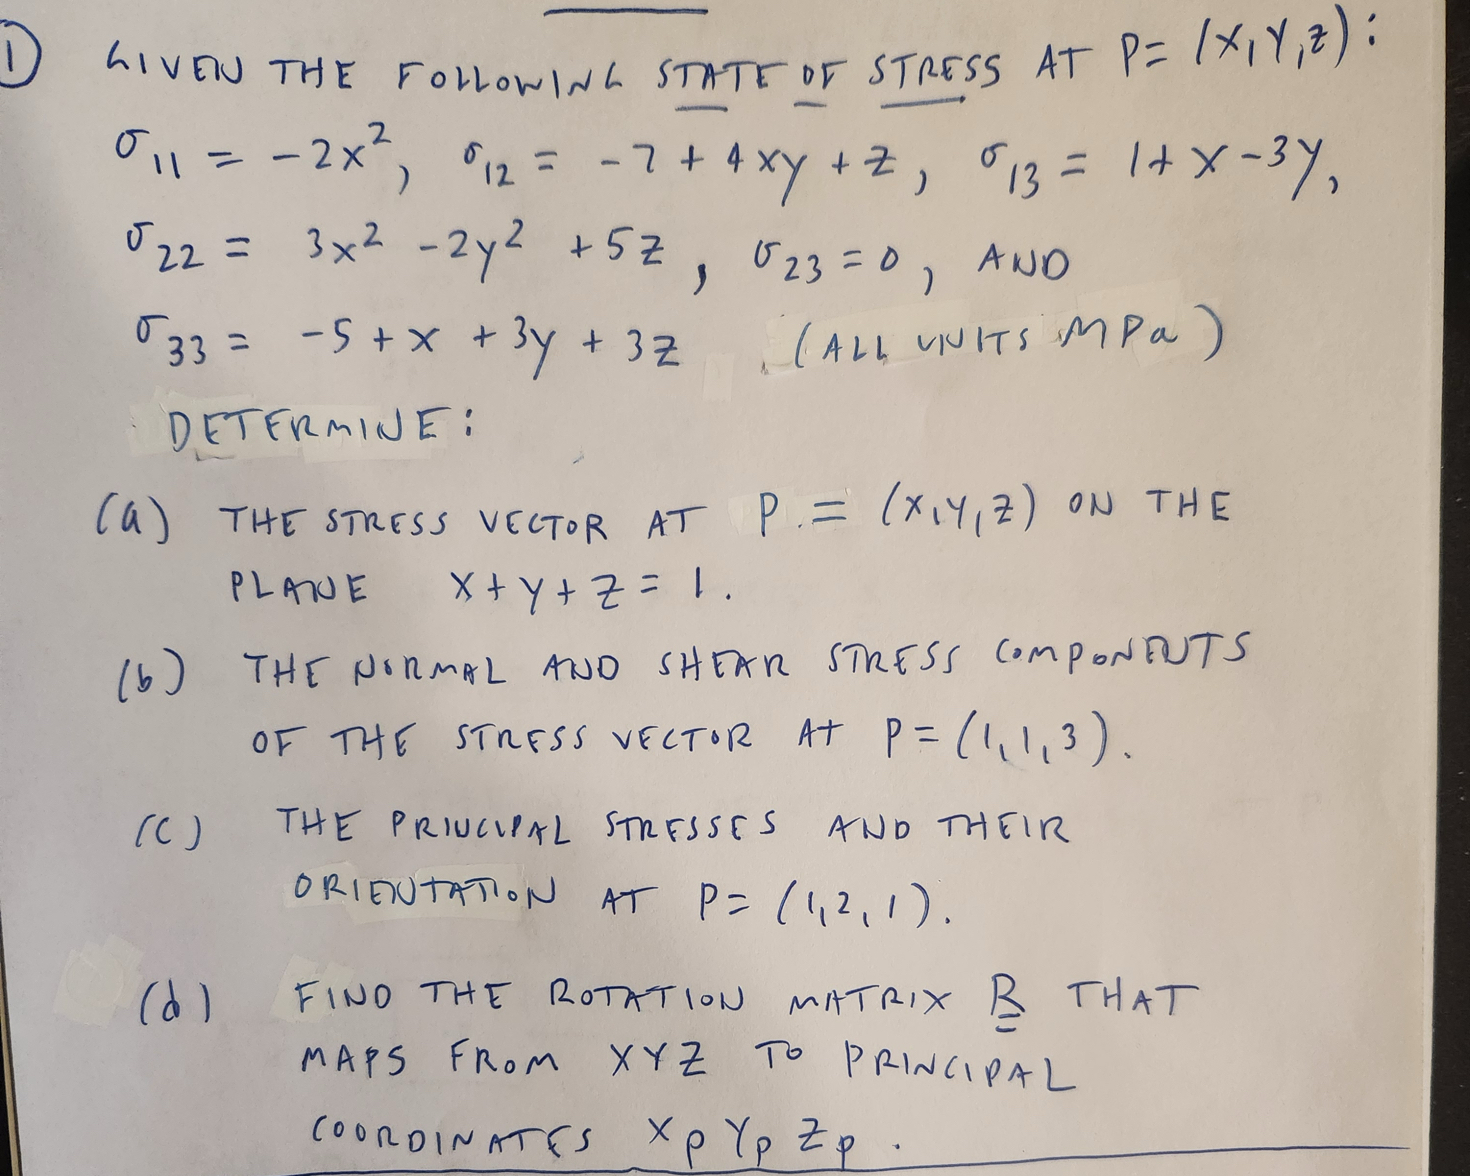 ① GIVEN THE FOLLOWING STATE OF STRESS AT P= (X,Y,Z):
σ₁₁ = -2x², σ₁₂ = -7 + 4xy + z, σ₁₃ = 1+x-3y,
σ₂₂ = 3x² -2y² +5z, σ₂₃=0, AND
σ₃₃ = -5+x +3y + 3z (ALL UNITS MPa)
DETERMINE:
(a) THE STRESS VECTOR AT P.= (x,y,z) ON THE
PLANE X+y+z=1.
(b) THE NORMAL AND SHEAR STRESS COMPONENTS
OF THE STRESS VECTOR At P=(1,1,3).
(c) THE PRINCIPAL STRESSES AND THEIR
ORIENTATION AT P= (1,2,1).
(d) FIND THE ROTATION MATRIX R THAT
MAPS FROM XYZ TO PRINCIPAL
COORDINATES Xp Yp Zp.